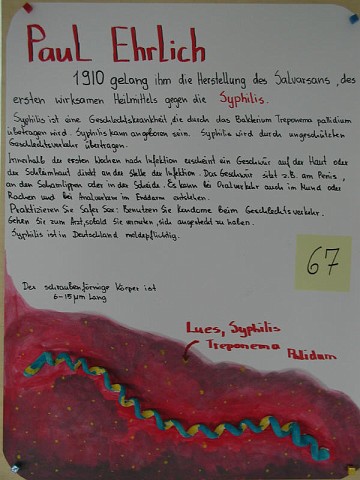 Paul Ehrlich
1910 gelang ihm die Herstellung des Salvarsans, des
ersten wirksamen Heilmittels gegen die Syphilis.
Syphilis ist eine Geschlechtskrankheit, die durch das Bakterium Treponema pallidium
übertragen wird. Syphilis kann angeboren sein. Syphilis wird durch ungeschützten
Geschlechtsverkehr übertragen.
Innerhalb der ersten Wochen nach Infektion erscheint ein Geschwür auf der Haut oder
der Schleimhaut direkt an der Stelle der Infektion. Das Geschwür sitzt z.B. am Penis,
an den Schamlippen oder in der Scheide. Es kann bei Oralverkehr auch im Mund oder
Rachen und bei Analverkehr im Enddarm entstehen.
Praktizieren Sie Safer Sex: Benutzen Sie Kondome beim Geschlechtsverkehr.
Gehen Sie zum Arzt, sobald Sie vermuten, sich angesteckt zu haben.
Syphilis ist in Deutschland meldepflichtig.
67
Der schraubenförmige Körper ist
6-15 µm lang
Lues, Syphilis
Treponema
Pallidum